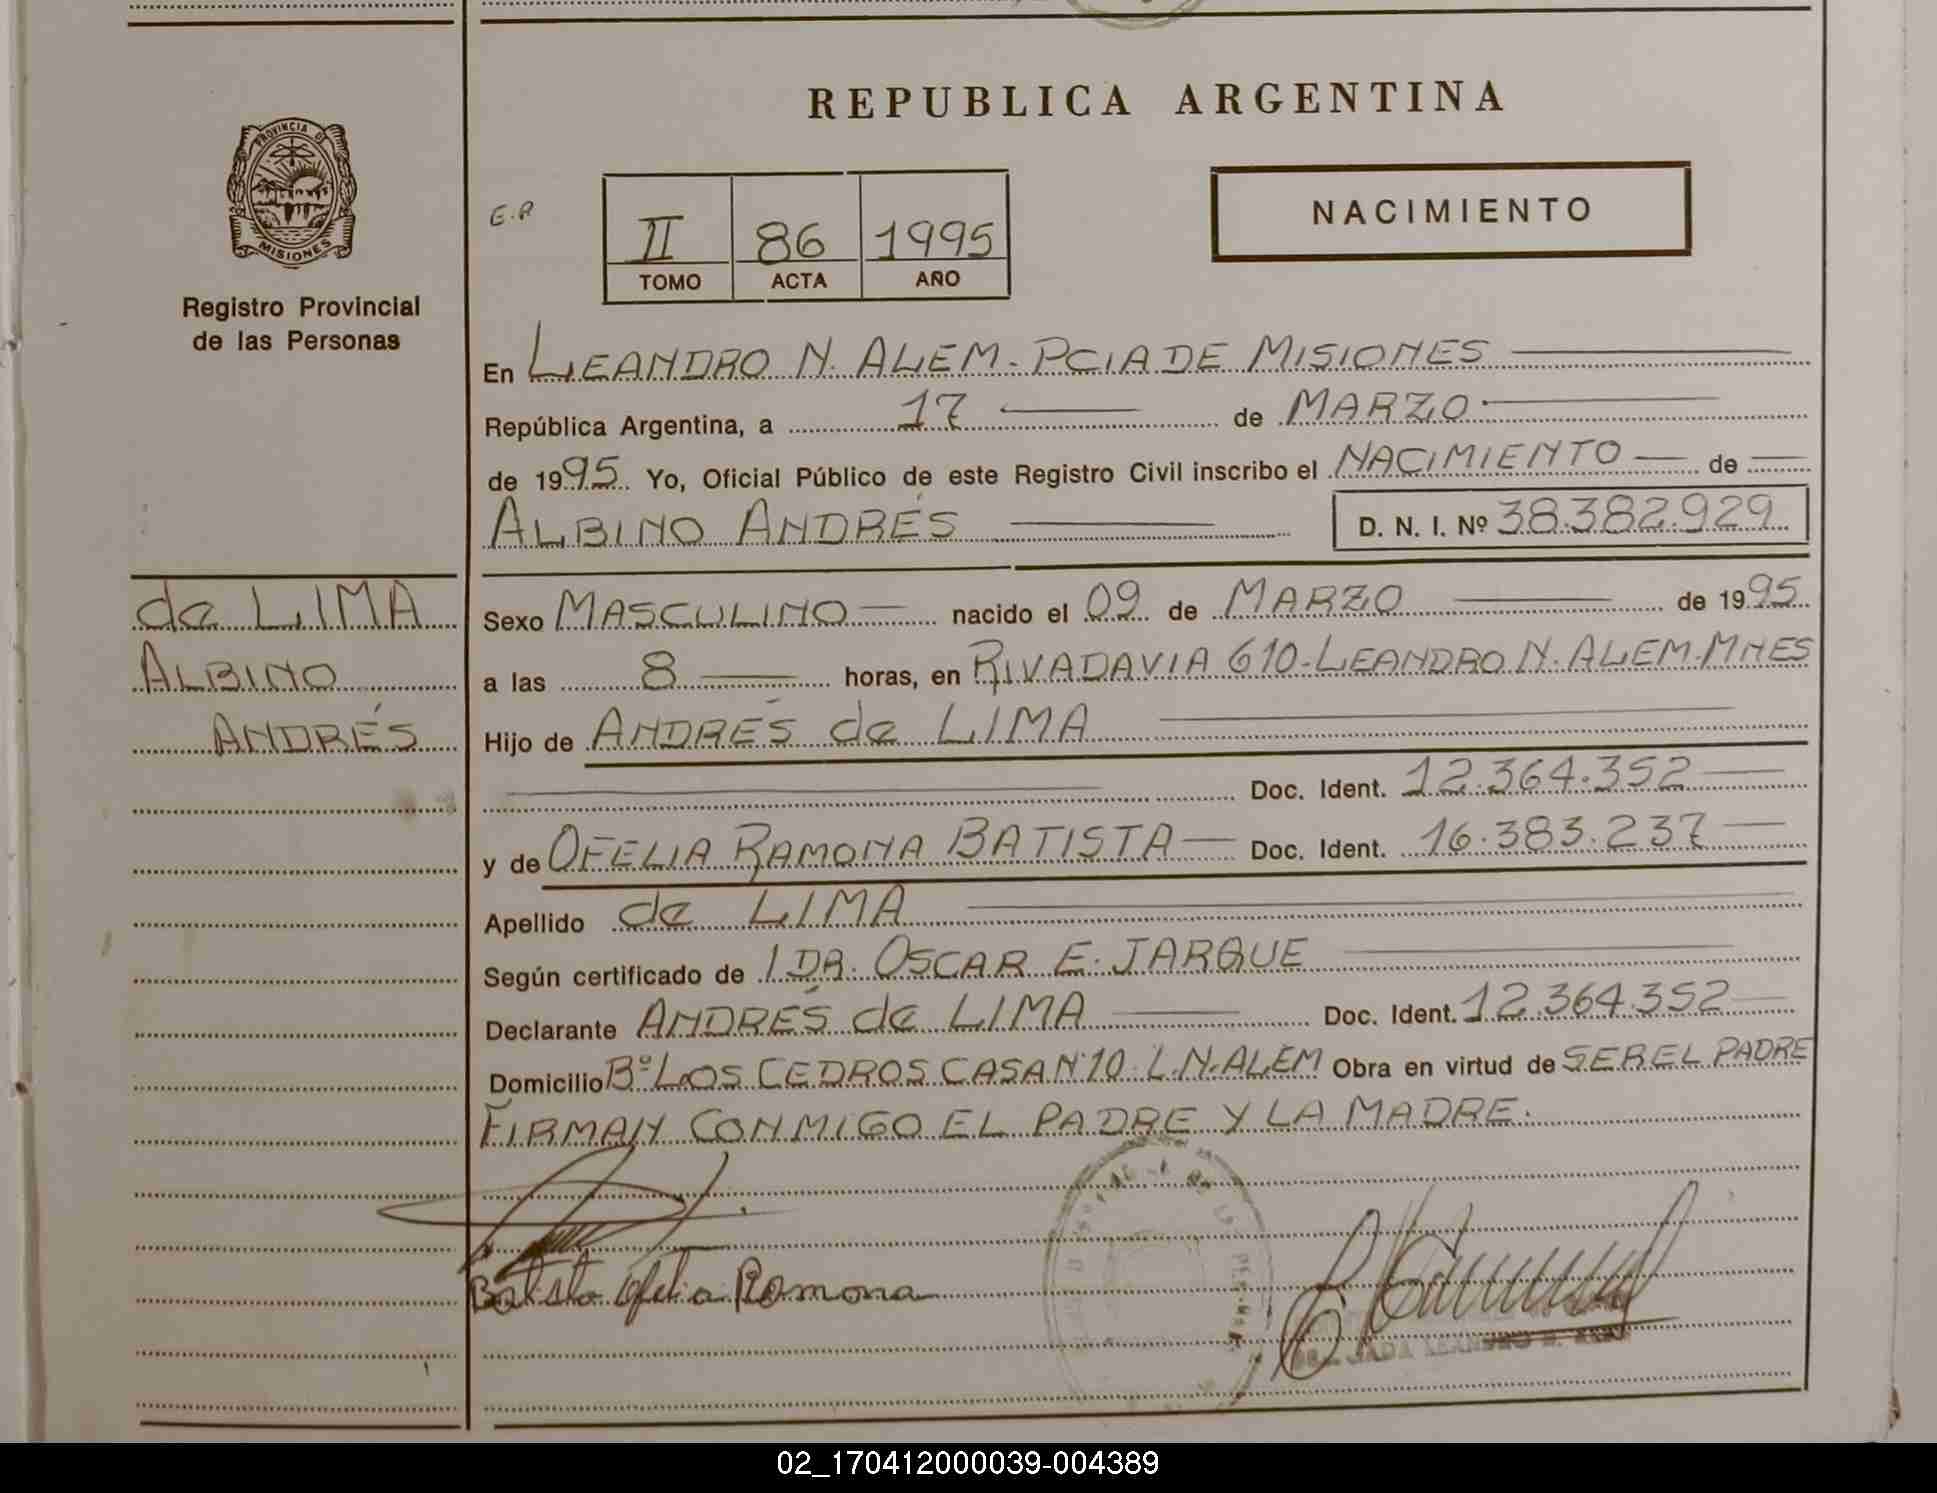 REPUBLICA ARGENTINA
PROVINCIA DE MISIONES
Registro Provincial
de las Personas
E.R
II 86 1995
TOMO ACTA AÑO
NACIMIENTO
En LEANDRO N. ALEM - PCIA DE MISIONES
República Argentina, a 17 de MARZO
de 1995 Yo, Oficial Público de este Registro Civil inscribo el NACIMIENTO de
ALBINO ANDRÉS D. N. I. Nº 38.382.929
de LIMA
ALBINO
ANDRÉS
Sexo MASCULINO nacido el 09 de MARZO de 1995
a las 8 horas, en RIVADAVIA 610-LEANDRO N. ALEM-MNES
Hijo de ANDRÉS de LIMA
Doc. Ident. 12.364.352
y de OFELIA RAMONA BATISTA Doc. Ident. 16.383.237
Apellido de LIMA
Según certificado de DR. OSCAR E. JARQUE
Declarante ANDRÉS de LIMA Doc. Ident. 12.364.352
Domicilio Bº LOS CEDROS CASA Nº10 L.N.ALEM Obra en virtud de SER EL PADRE
FIRMAN CONMIGO EL PADRE Y LA MADRE.
Batista Ofelia Ramona
LEANDRO N. ALEM
02_170412000039-004389